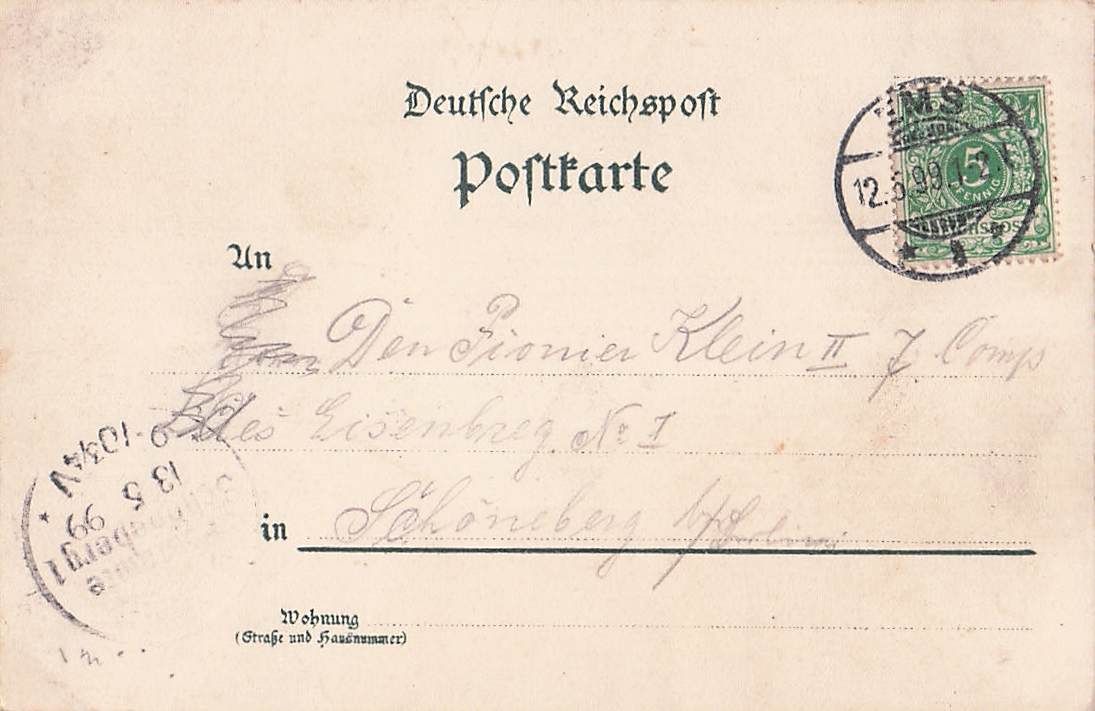 Deutsche Reichspost
Postkarte
EMS
12.5.99.1-2
5
PFENNIG
REICHSPOST
An
Den Pionier Klein II 7 Comp
des Eisenbreg. No I
in Schöneberg b/Berlin
Wohnung
(Straße und Hausnummer)
Schöneberg 1
13 5
99
9-10¾V